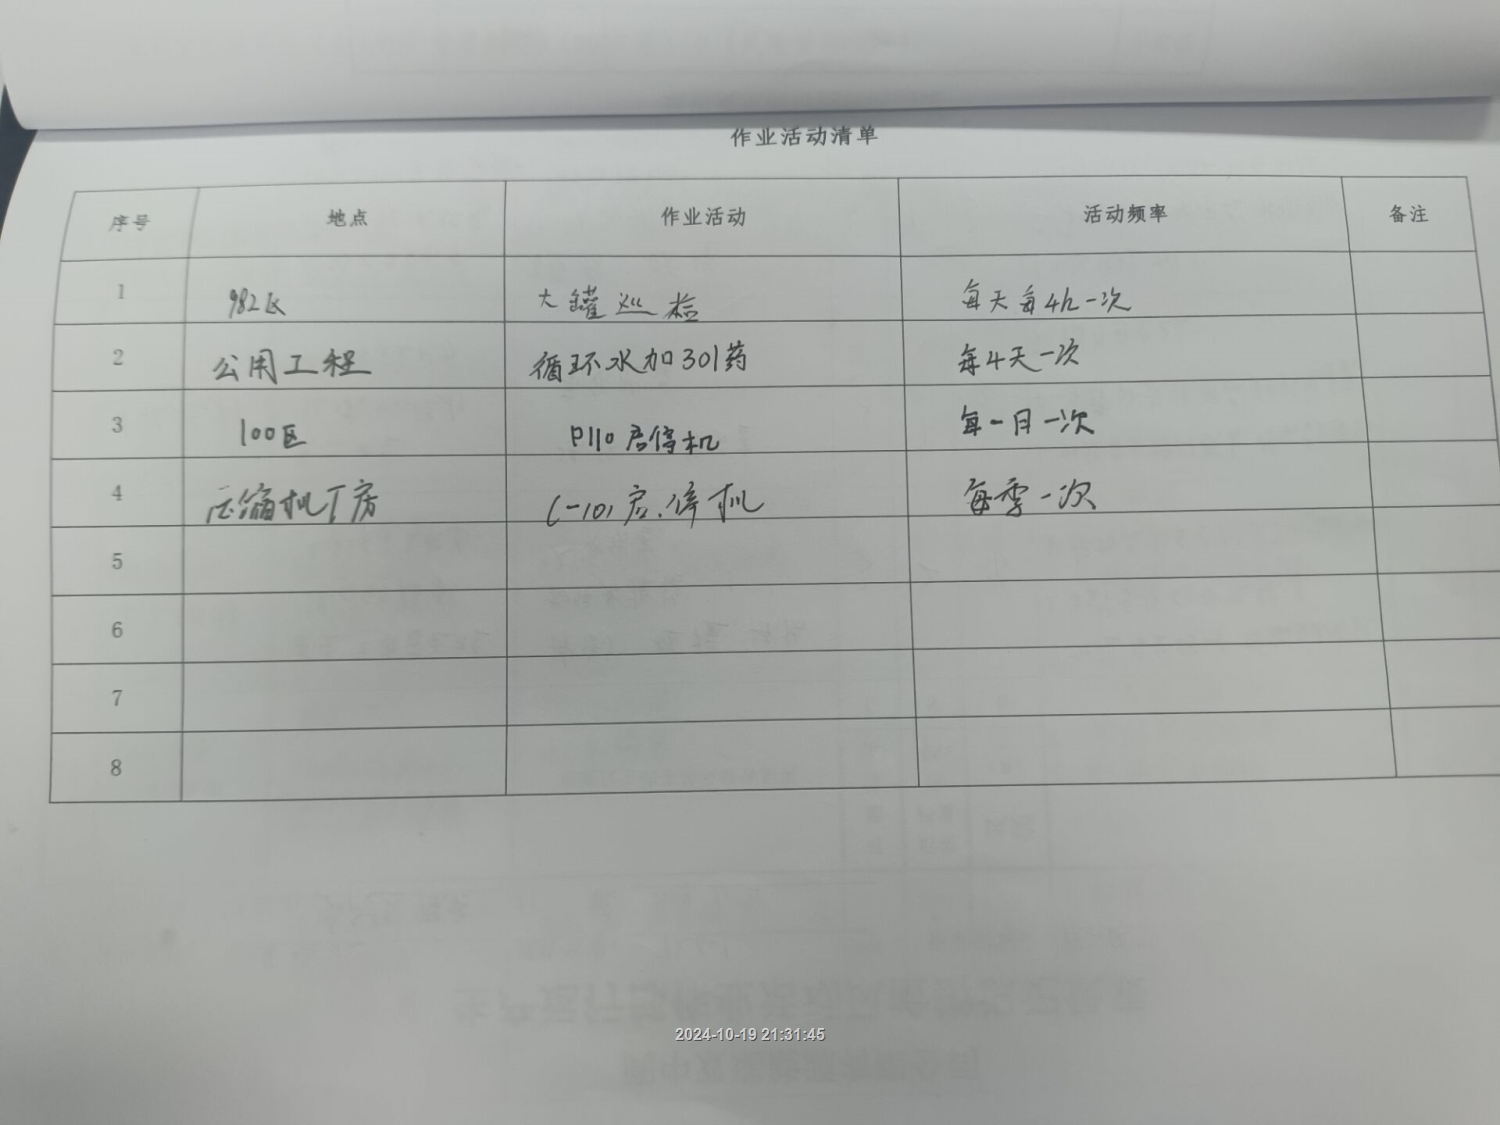 作业活动清单
序号 地点 作业活动 活动频率 备注
1 982区 大罐巡检 每天每4h一次
2 公用工程 循环水加301药 每4天一次
3 100区 P110启停机 每一月一次
4 压缩机厂房 C-101启.停机 每季一次
5
6
7
8
2024-10-19 21:31:45